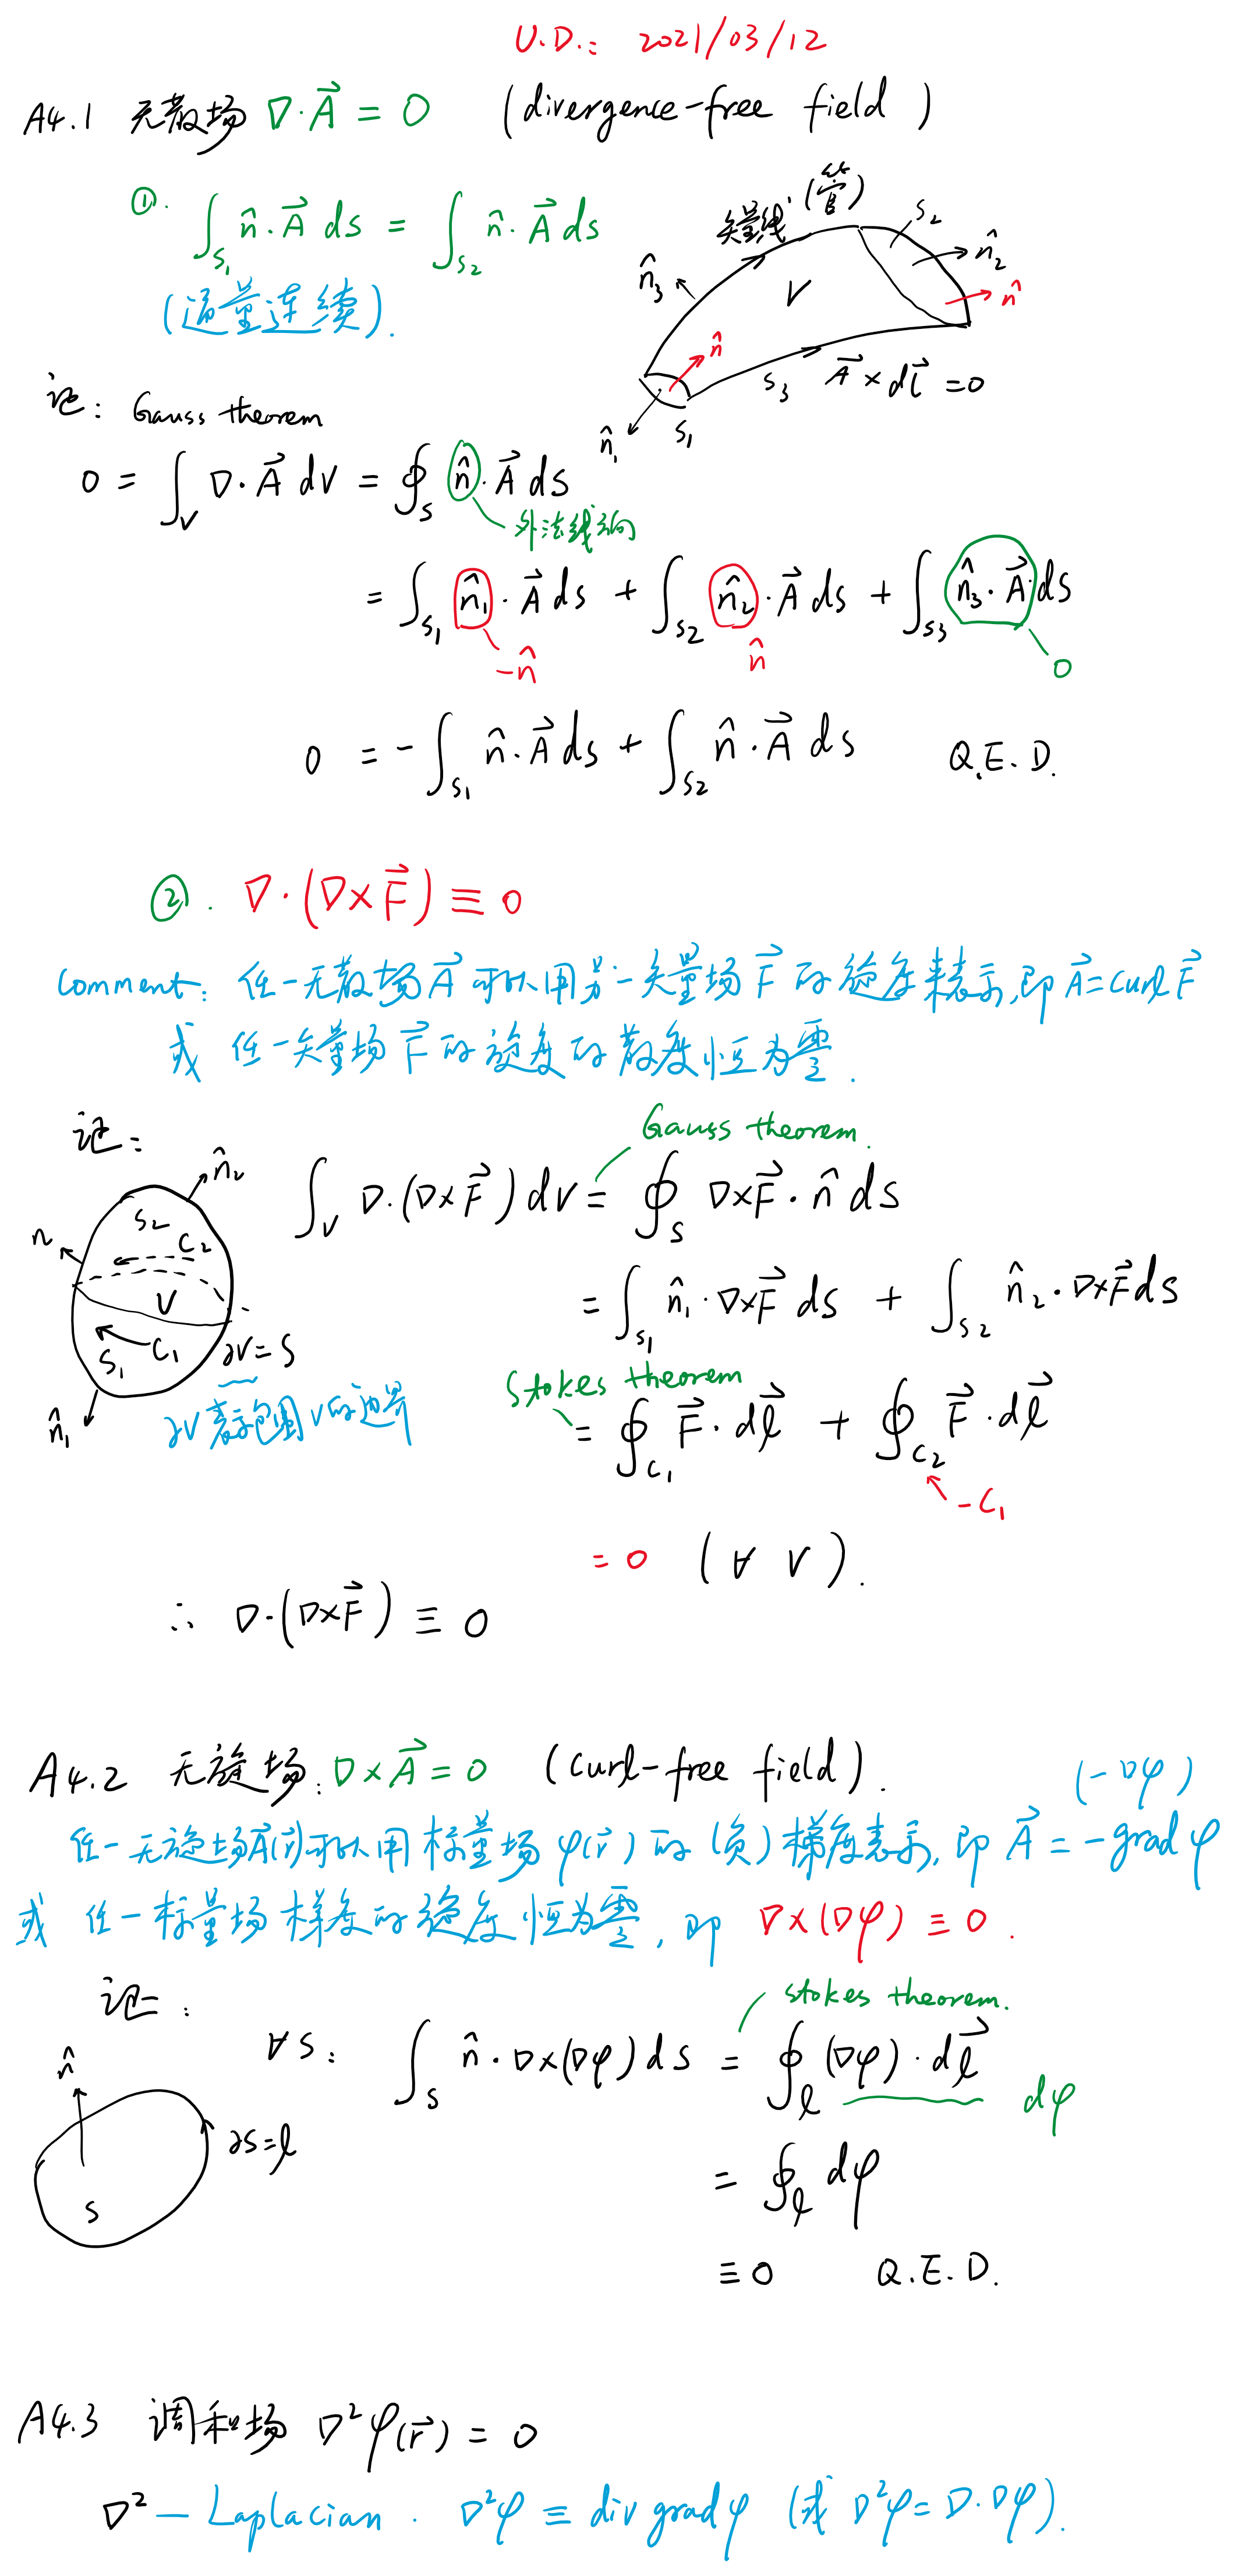 U.D.: 2021/03/12
A4.1 无散场 ∇·A⃗ = 0 (divergence-free field)
①. ∫_{S₁} n̂·A⃗ ds = ∫_{S₂} n̂·A⃗ ds
(通量连续).
矢量线(管)
S₂
n̂₂
n̂₃
V
n̂
n̂
S₃ A⃗×dl⃗ = 0
n̂₁
S₁
证: Gauss theorem
0 = ∫_V ∇·A⃗ dV = ∮_S n̂·A⃗ ds
外法线方向
= ∫_{S₁} n̂₁·A⃗ ds + ∫_{S₂} n̂₂·A⃗ ds + ∫_{S₃} n̂₃·A⃗ ds
-n̂ n̂ 0
0 = -∫_{S₁} n̂·A⃗ ds + ∫_{S₂} n̂·A⃗ ds Q.E.D.
②. ∇·(∇×F⃗) ≡ 0
Comment: 任一无散场A⃗可以用另一矢量场F⃗的旋度来表示,即A⃗=curl F⃗
或 任一矢量场F⃗的旋度的散度恒为零.
证:
Gauss theorem.
∫_V ∇·(∇×F⃗) dV = ∮_S ∇×F⃗·n̂ ds
n̂₂
S₂
n
C₂
V
S₁ C₁ ∂V=S
n̂₁
∂V表示包围V的边界
= ∫_{S₁} n̂₁·∇×F⃗ ds + ∫_{S₂} n̂₂·∇×F⃗ ds
Stokes theorem
= ∮_{C₁} F⃗·dl⃗ + ∮_{C₂} F⃗·dl⃗
-C₁
= 0 (∀ V).
∴ ∇·(∇×F⃗) ≡ 0
A4.2 无旋场: ∇×A⃗ = 0 (curl-free field).
(-∇φ)
任一无旋场A⃗(r⃗)可以用标量场φ(r⃗)的(负)梯度表示,即 A⃗ = -grad φ
或 任一标量场梯度的旋度恒为零,即 ∇×(∇φ) ≡ 0.
证:
stokes theorem.
∀S: ∫_S n̂·∇×(∇φ) ds = ∮_l (∇φ)·dl⃗
dφ
n̂
∂S=l
S
= ∮_l dφ
≡ 0 Q.E.D.
A4.3 调和场 ∇²φ(r⃗) = 0
∇² — Laplacian. ∇²φ ≡ div grad φ (或 ∇²φ = ∇·∇φ).